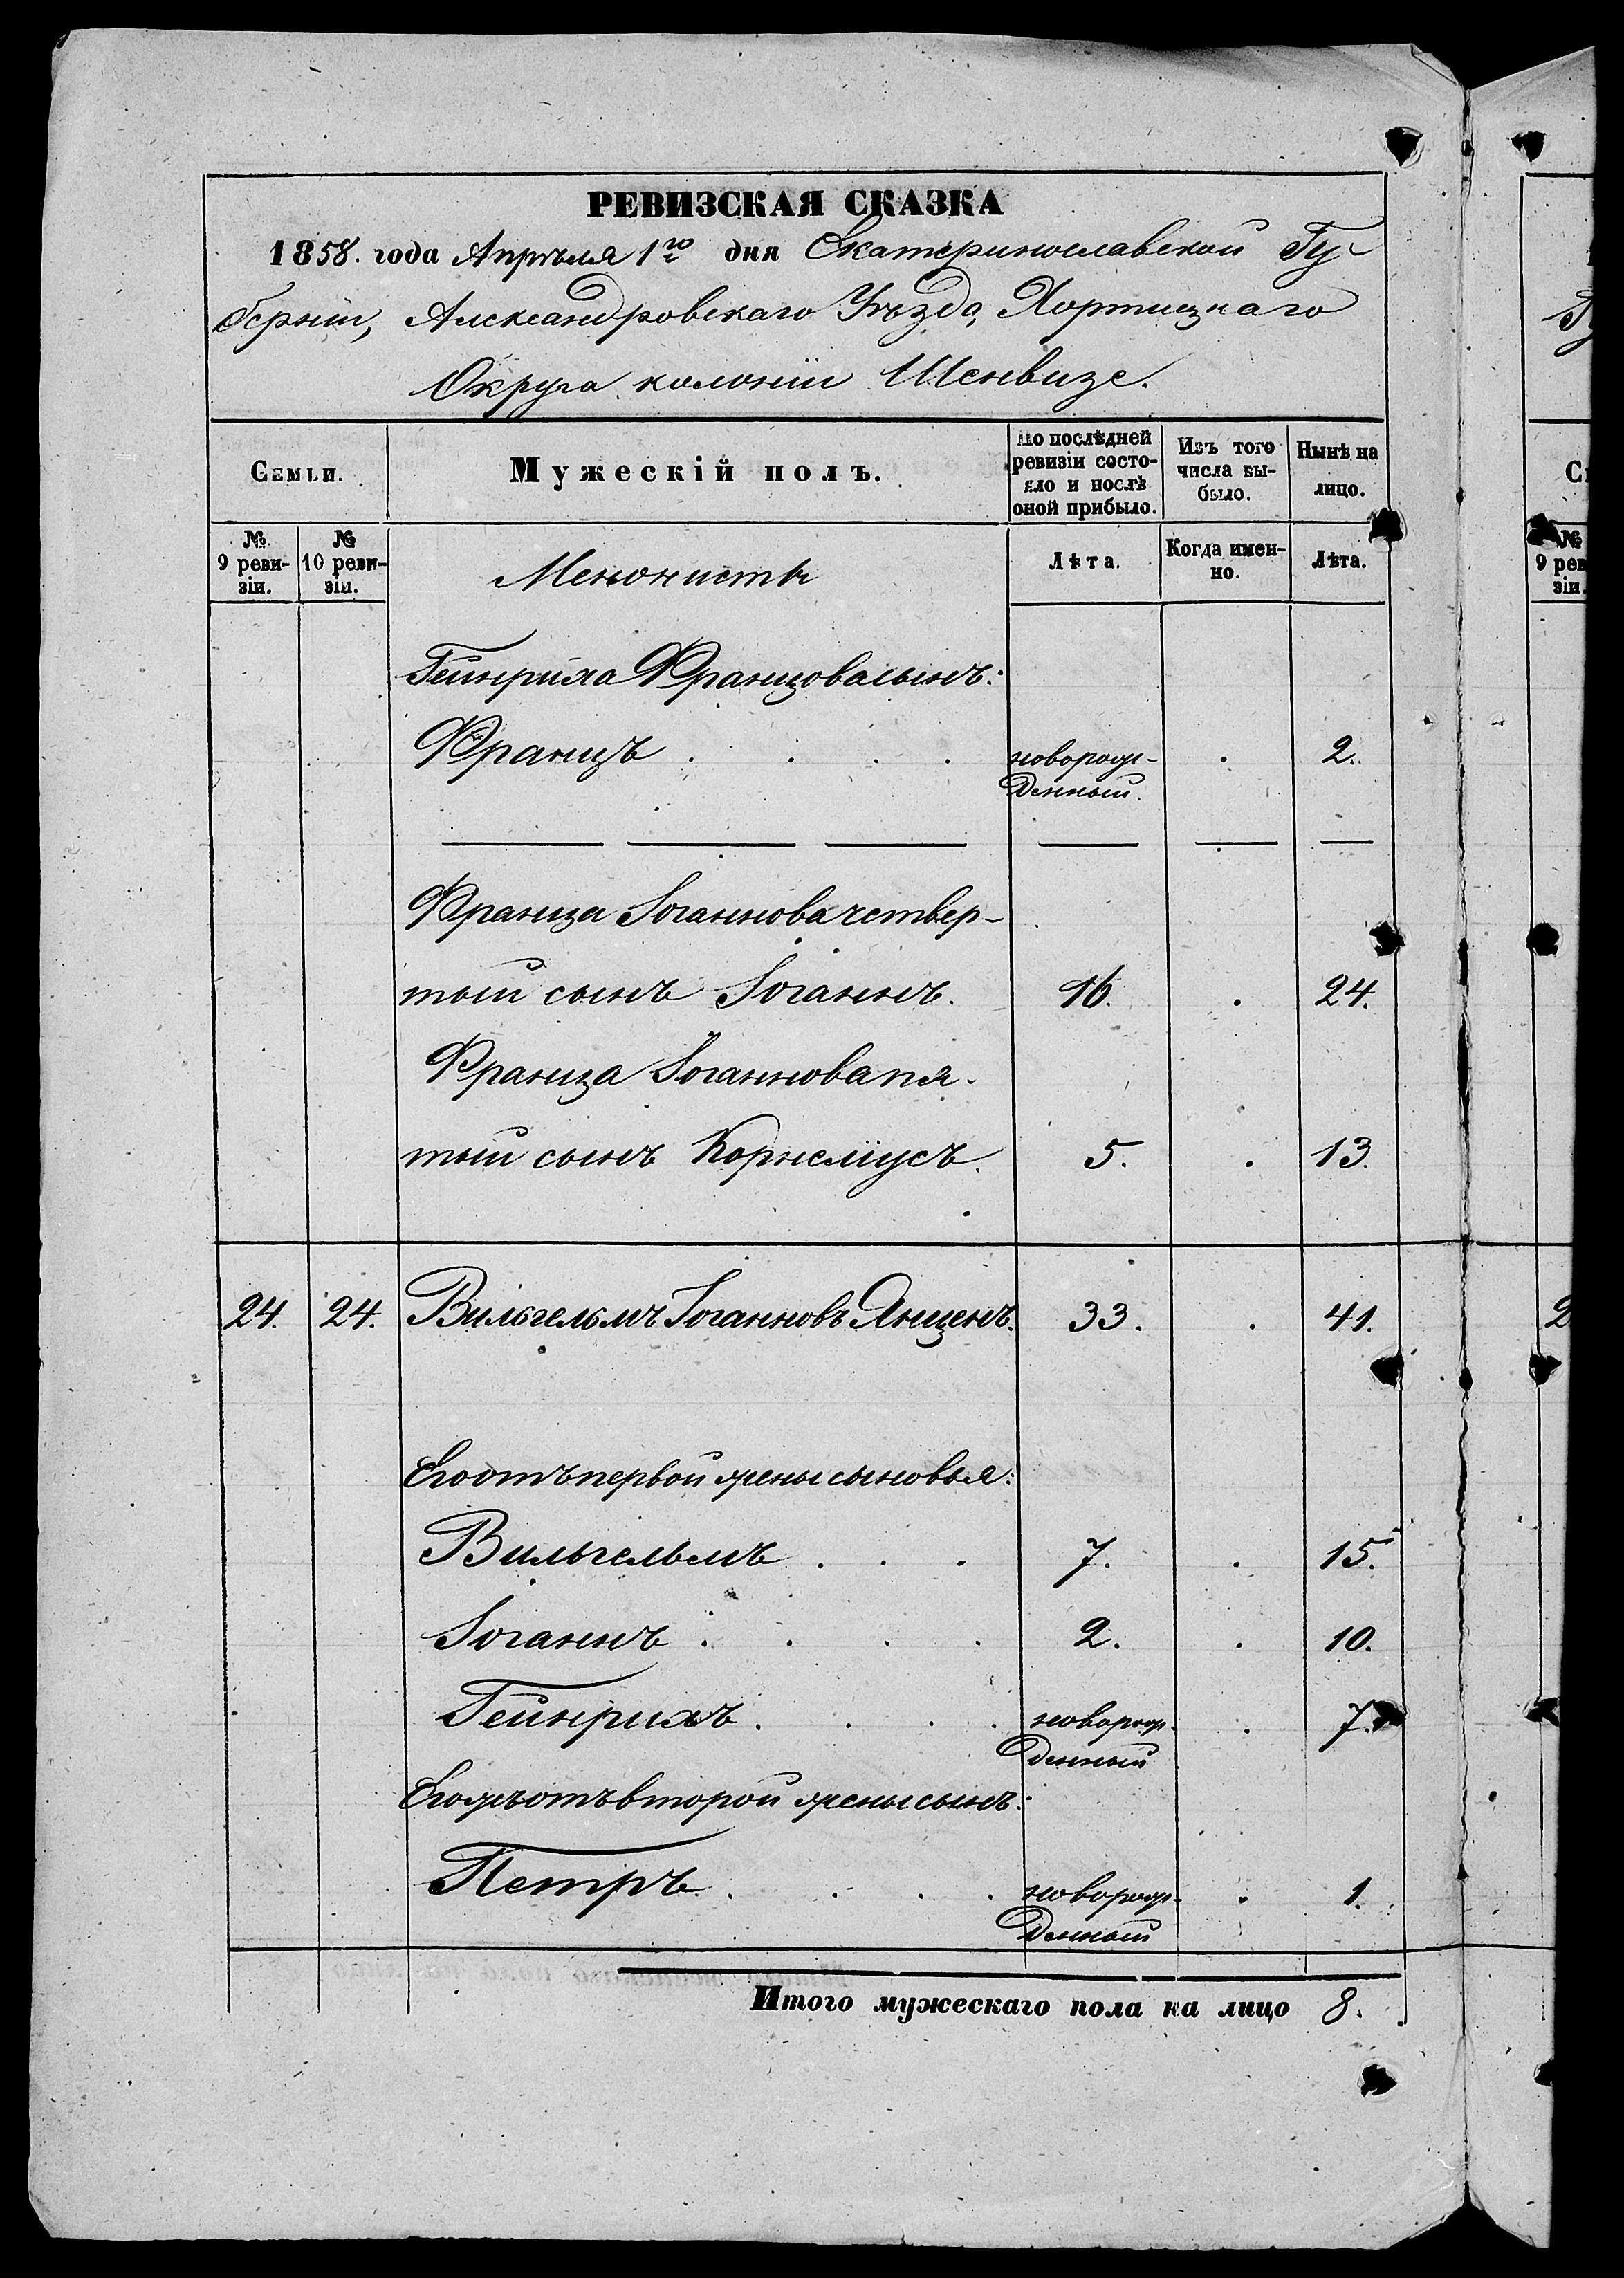 РЕВИЗСКАЯ СКАЗКА
1858. года Апрѣля 1го дня Екатеринославской Гу-
берніи, Александровскаго Уѣзда, Хортицкаго
Округа колоніи Шенвизе.
Семьи.
Мужескій полъ.
По послѣдней ревизіи состо-
яло и послѣ оной прибыло.
Изъ того числа вы-
было.
Нынѣ на лицо.
№ 9 реви-
зіи.
№ 10 реви-
зіи.
Менонисты
Лѣта.
Когда имен-
но.
Лѣта.
Гейнриха Францова сынъ:
Францъ . . . . новорож- . 2.
денный.
Франца Іоганнова четвер-
тый сынъ Іоганнъ. 16. . 24.
Франца Іоганнова пя-
тый сынъ Корнеліусъ. 5. . 13.
24. 24. Вильгельмъ Іоганновъ Янценъ. 33. . 41.
Его отъ первой жены сыновья:
Вильгельмъ . . . 7. . 15.
Іоганнъ . . . . 2. . 10.
Гейнрихъ . . . . новорож- . 7.
денный
Его жъ отъ второй жены сынъ:
Петръ . . . . новорож- . 1.
денный
Итого мужескаго пола на лицо 8.